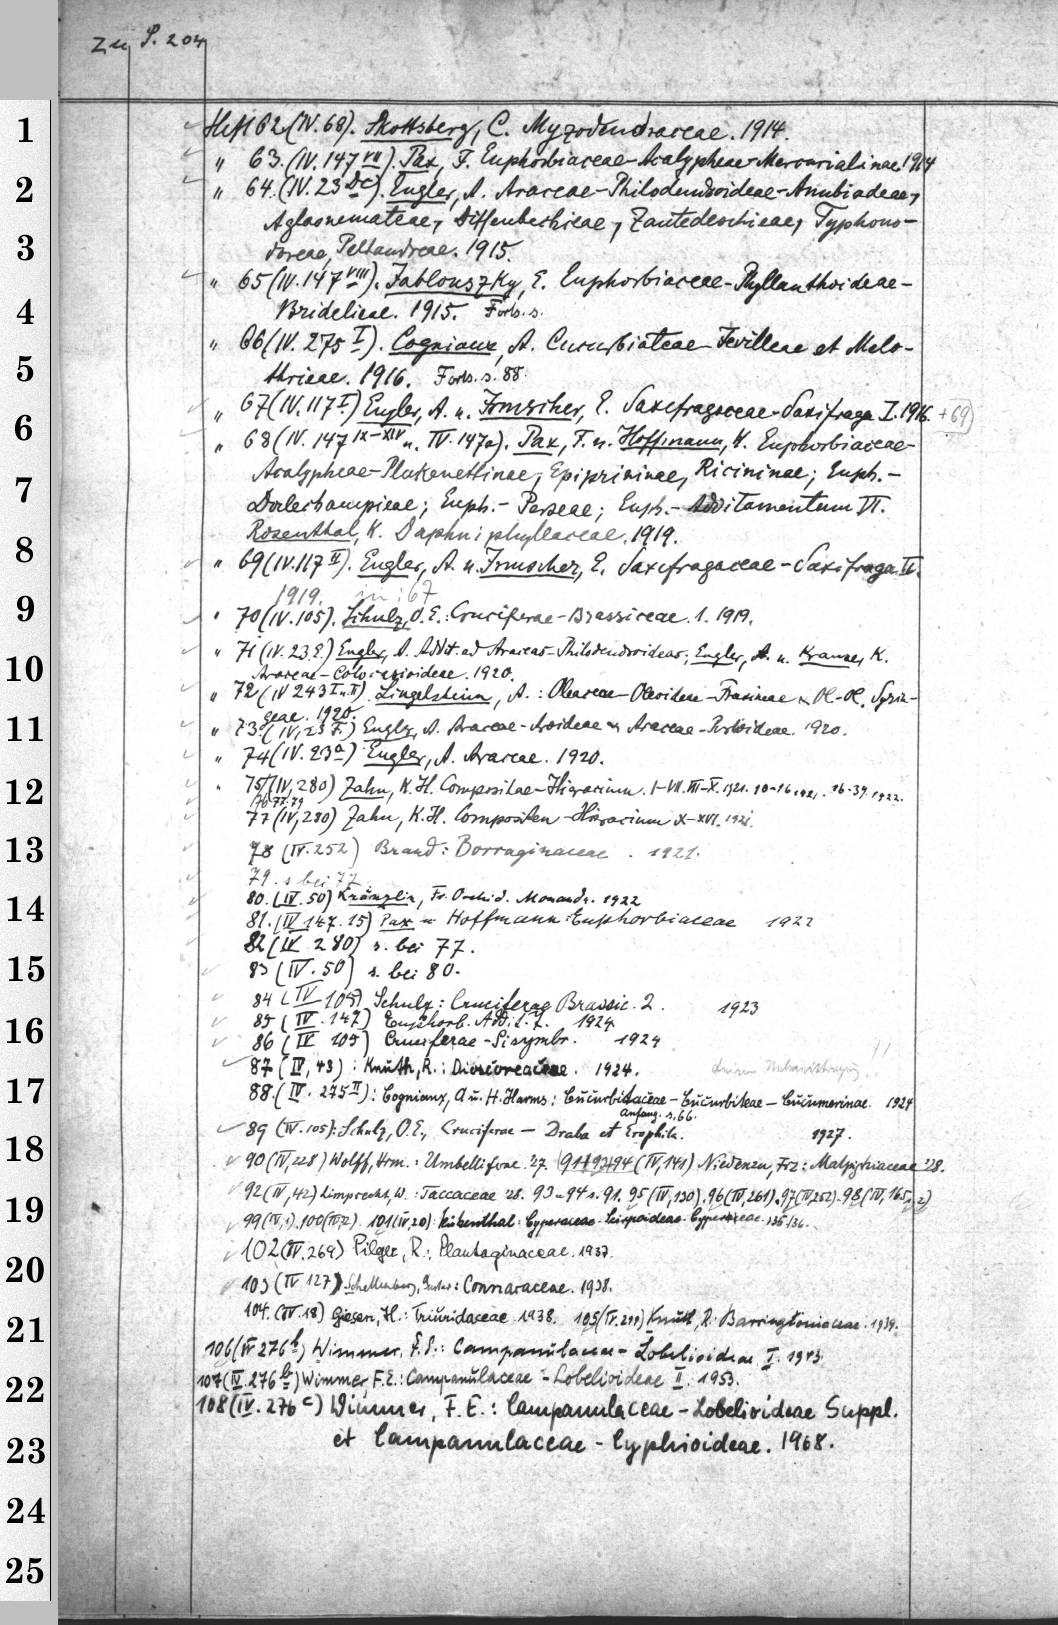 Zu S. 204
1
2
3
4
5
6
7
8
9
10
11
12
13
14
15
16
17
18
19
20
21
22
23
24
25
Heft 62 (IV. 68). Skottsberg, C. Myzodendraceae. 1914.
" 63. (IV. 147 VII). Pax, F. Euphorbiaceae-Acalypheae-Mercurialinae 1914
" 64. (IV. 23 Dc). Engler, A. Araceae-Philodendroideae-Anubiadeae,
Aglaonemateae, Dieffenbachieae, Zantedeschieae, Typhono-
doreae, Peltandreae. 1915.
" 65 (IV. 147 VIII). Jablonszky, E. Euphorbiaceae-Phyllanthoideae-
Bridelieae. 1915. Forts. s.
" 66 (IV. 275 I). Cogniaux, A. Cucurbiateae-Fevilleae et Melo-
thrieae. 1916. Forts. s. 88.
" 67 (IV. 117 I) Engler, A. u. Irmscher, E. Saxifragaceae-Saxifraga I. 1916. + 69)
" 68 (IV. 147 IX-XIV u. IV. 147a). Pax, F. u. Hoffmann, K. Euphorbiaceae-
Acalypheae-Plukenetiinae, Epiprininae, Ricininae; Euph.-
Dalechampieae; Euph.- Pereae; Euph.- Additamentum VI.
Rosenthal, K. Daphniphyllaceae. 1919.
" 69 (IV. 117 II). Engler, A. u. Irmscher, E. Saxifragaceae-Saxifraga II.
1919. in: 67
" 70 (IV. 105). Schulz, O. E.: Cruciferae-Brassiceae. 1. 1919.
" 71 (IV. 23 E.) Engler, A. Addit. ad Araceas-Philodendroideas; Engler, A. u. Krause, K.
Araceae-Colocasioideae. 1920.
" 72 (IV 243 I u. II). Lingelsheim, A.: Oleaceae-Oleoideae-Fraxineae u. Ol-Ol. Syrin-
geae. 1920.
" 73 (IV, 23 F.) Engler, A. Araceae-Aroideae u. Araceae-Pistioideae. 1920.
" 74 (IV. 23a) Engler, A. Araceae. 1920.
" 75 (IV, 280) Zahn, K. H. Compositae-Hieracium. I-VII. VII-X. 1921. 10-16 1921. 16-39. 1922.
76 77. 79
77 (IV, 280) Zahn, K. H. Compositen-Hieracium X-XVI. 1921.
78 (IV. 252) Brand: Borraginaceae . 1921.
79. s bei 77.
80. (IV. 50) Kränzlin, Fr. Orchid. Monandr. 1922
81. (IV 147. 15) Pax u Hoffmann: Euphorbiaceae 1922
82 (IV 280) s. bei 77.
83 (IV. 50) s. bei 80.
84 (IV 105) Schulz: Cruciferae Brassic. 2. 1923
85 (IV. 147) Euphorb. Addit. 7. 1924
86 (IV 105) Cruciferae-Sisymbr. 1924
87 (IV, 43): Knuth, R.: Dioscoreaceae. 1924.
88. (IV. 275 II): Cogniaux, A u. H. Harms: Cucurbitaceae-Cucurbiteae-Cucumerinae. 1924
Anfang. s. 66.
89 (IV. 105): Schulz, O. E., Cruciferae - Draba et Erophila. 1927.
90 (IV, 228) Wolff, Hrm.: Umbelliferae. '27. (91+93+94 (IV, 141) Niedenzu, Frz: Malpighiaceae '28.
92 (IV, 42) Limprecht, W.: Taccaceae '28. 93-94 s. 91. 95 (IV, 130). 96 (IV. 261). 97 (IV 252). 98 (IV, 165, 2)
99 (IV, 1). 100 (IV 2) 101 (IV, 20) Kükenthal: Cyperaceae-Scirpoideae-Cypereae. 135/136.
102 (IV. 269) Pilger, R.: Plantaginaceae. 1937.
103 (IV 127) Schellenberg, Gustav: Connaraceae. 1938.
104. (IV. 18) Giesen, H.: Triuridaceae 1938. 105 (IV. 219) Knuth, R. Barringtoniaceae. 1939.
106 (IV 276 b) Wimmer, F. E.: Campanulaceae-Lobelioideae I. 1943.
107 (IV. 276 b) Wimmer, F. E.: Campanulaceae-Lobelioideae II. 1953.
108 (IV. 276 c) Wimmer, F. E.: Campanulaceae-Lobelioideae Suppl.
et Campanulaceae-Cyphioideae. 1968.